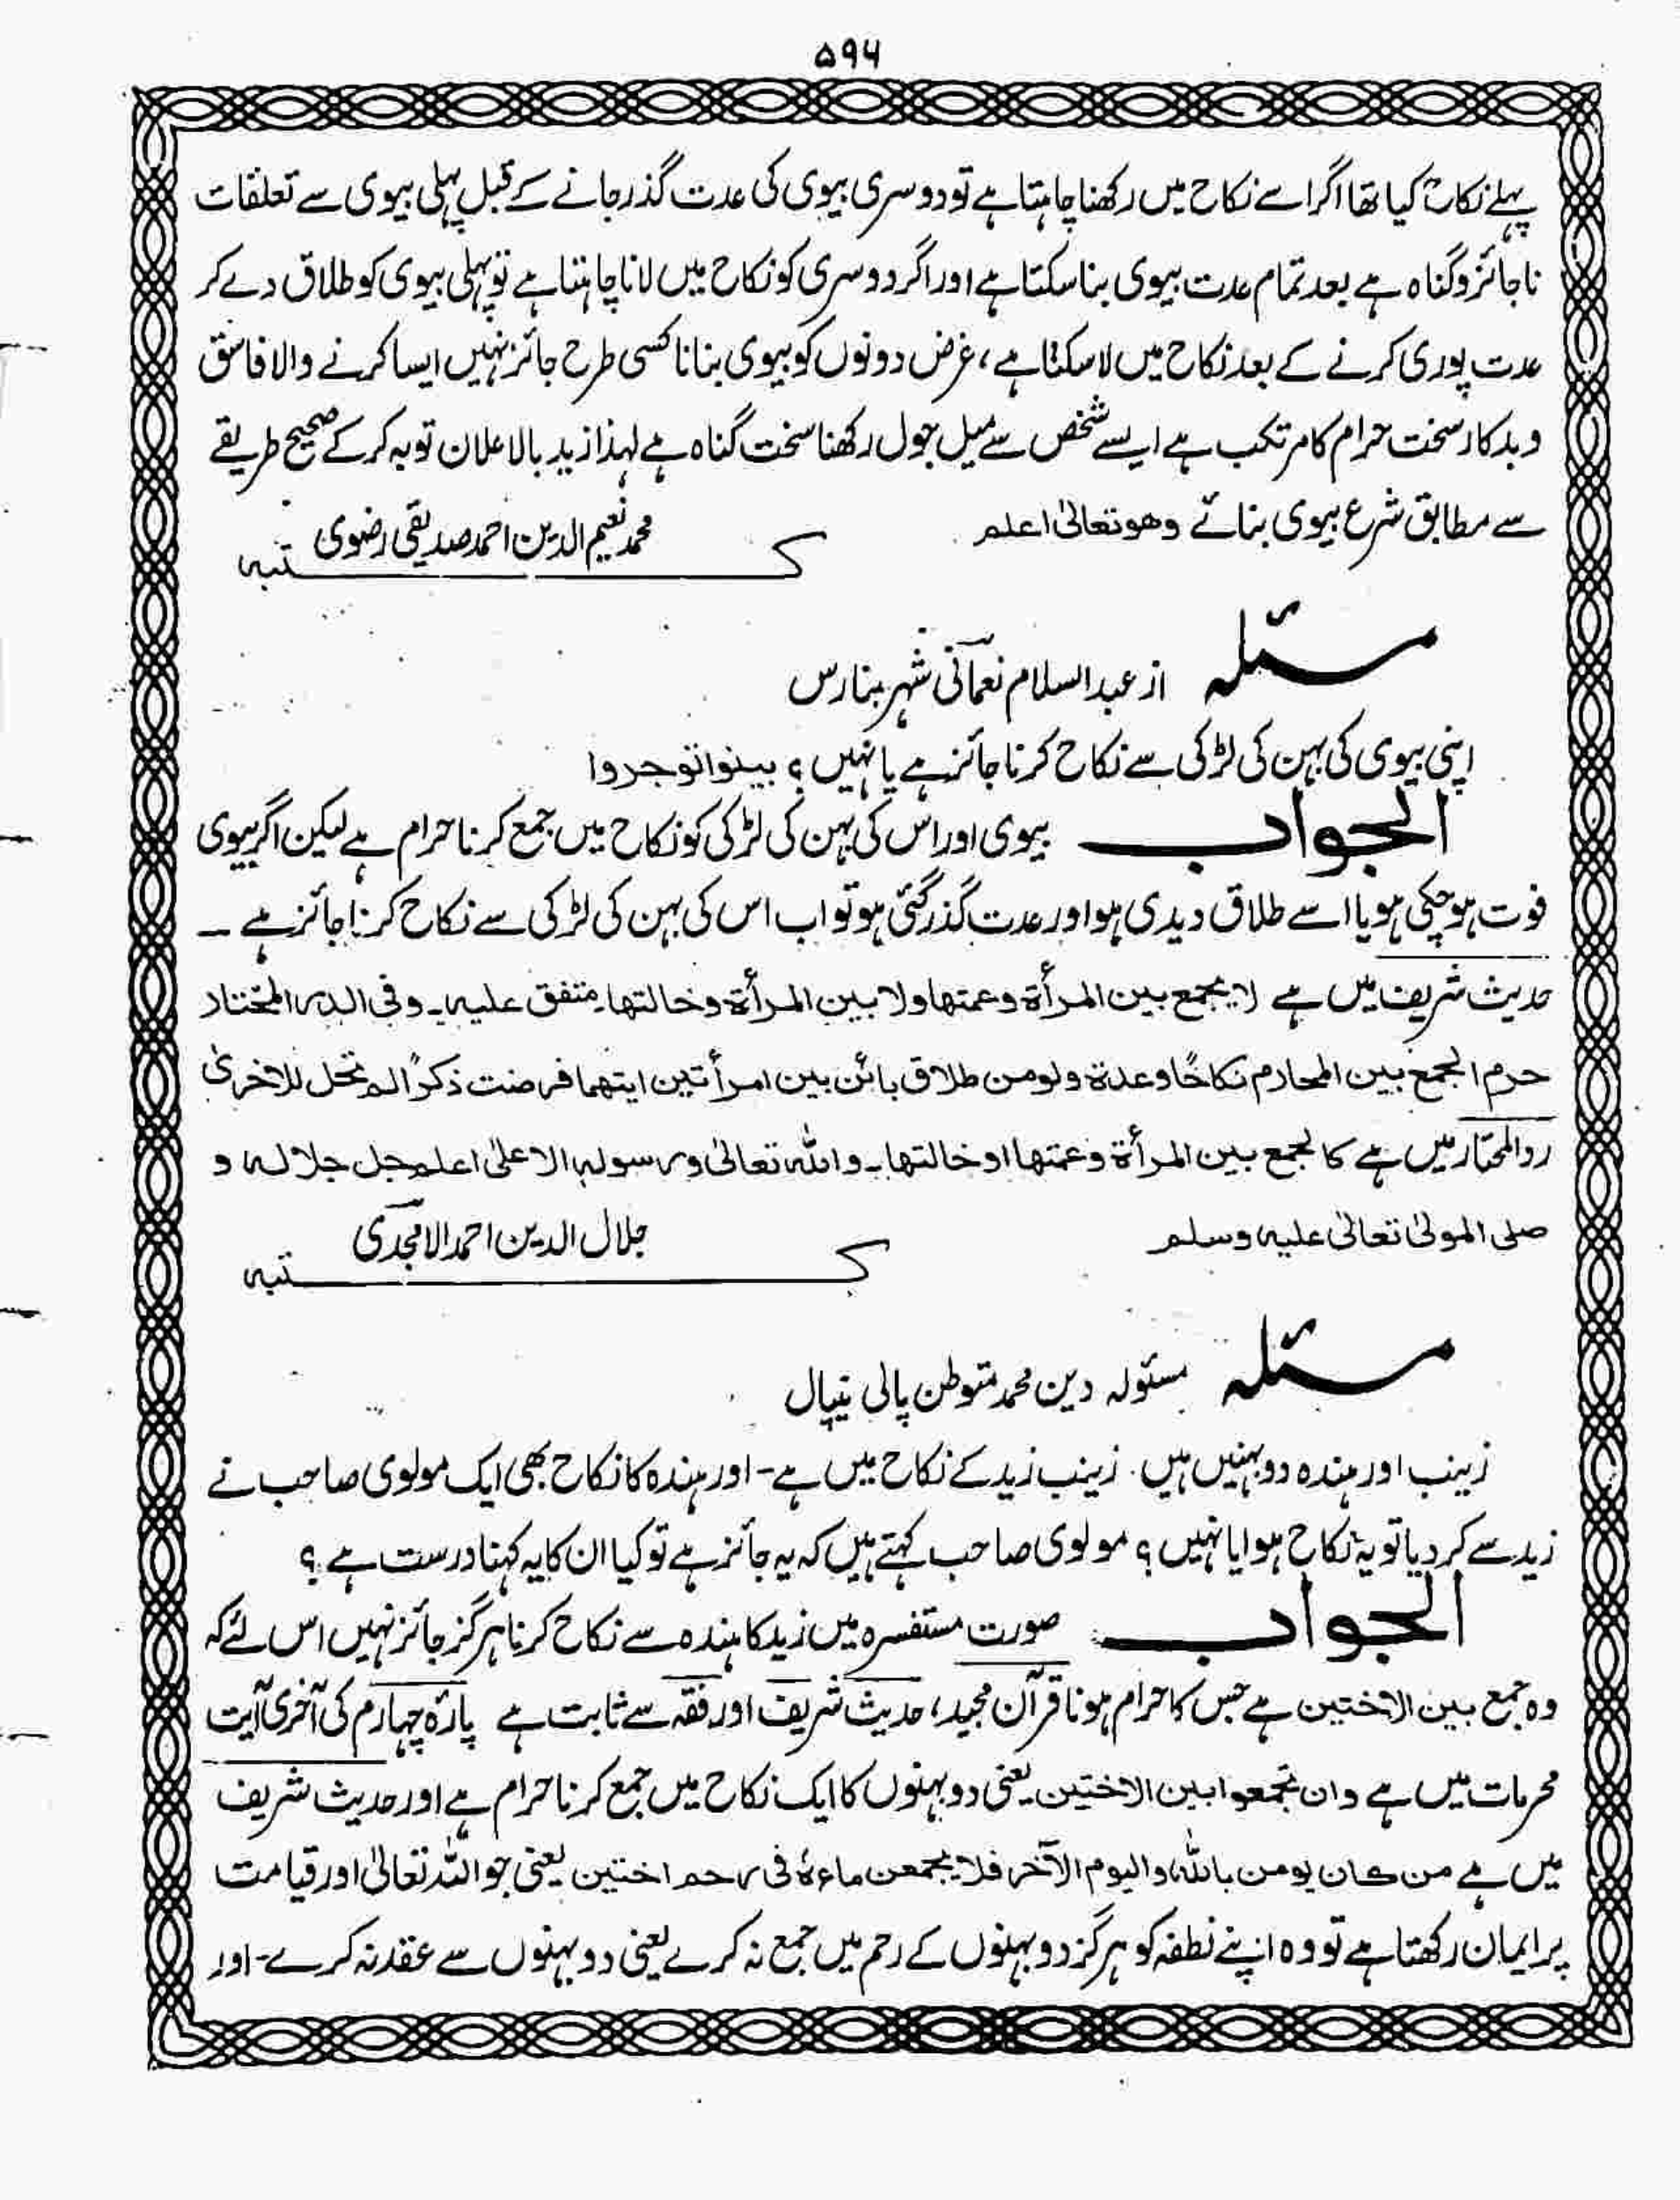 ۵۹۴
پہلے نکاح کیا تھا اگر اسے نکاح میں رکھنا چاہتا ہے تو دوسری بیوی کی عدت گذر جانے کے قبل پہلی بیوی سے تعلقات
ناجائز و گناہ ہے بعد تمام عدت بیوی بنا سکتا ہے اور اگر دوسری کو نکاح میں لانا چاہتا ہے تو پہلی بیوی کو طلاق دے کر
عدت پوری کرنے کے بعد نکاح میں لا سکتا ہے، غرض دونوں کو بیوی بنانا کسی طرح جائز نہیں ایسا کرنے والا فاسق
و بدکار سخت حرام کا مرتکب ہے ایسے شخص سے میل جول رکھنا سخت گناہ ہے لہذا زید بالاعلان توبہ کر کے صحیح طریقے
سے مطابق شرع بیوی بنائے وھو تعالیٰ اعلم
محمد نعیم الدین احمد صدیقی رضوی
کتبہ
مسئلہ از عبد السلام نعمانی شہر بنارس
اپنی بیوی کی بہن کی لڑکی سے نکاح کرنا جائز ہے یا نہیں؟ بینوا توجروا
الجواب بیوی اور اس کی بہن کی لڑکی کو نکاح میں جمع کرنا حرام ہے لیکن اگر بیوی
فوت ہو چکی ہو یا اسے طلاق دیدی ہو اور عدت گذر گئی ہو تو اب اس کی بہن کی لڑکی سے نکاح کرنا جائز ہے ۔
حدیث شریف میں ہے لا یجمع بین المرأۃ وعمتھا ولا بین المرأۃ وخالتھا۔ متفق علیہ۔ وفی الدر المختار
حرم الجمع بین المحارم نکاحًا وعدۃ ولو من طلاق بائن بین امرأتین ایتھما فرضت ذکرًا لم تحل للاخریٰ
ردالمحتار میں ہے کالجمع بین المرأۃ وعمتھا او خالتھا۔ واللہ تعالیٰ ورسولہ الاعلیٰ اعلم جل جلالہ و
صلی المولیٰ تعالیٰ علیہ وسلم
جلال الدین احمد الامجدی
کتبہ
مسئلہ مسئولہ دین محمد متوطن پالی نیپال
زینب اور ہندہ دو بہنیں ہیں۔ زینب زید کے نکاح میں ہے۔ اور ہندہ کا نکاح بھی ایک مولوی صاحب نے
زید سے کر دیا تو یہ نکاح ہوا یا نہیں؟ مولوی صاحب کہتے ہیں کہ یہ جائز ہے تو کیا ان کا یہ کہنا درست ہے؟
الجواب صورت مستفسرہ میں زید کا ہندہ سے نکاح کرنا ہرگز جائز نہیں اس لئے کہ
وہ جمع بین الاختین ہے جس کا حرام ہونا قرآن مجید، حدیث شریف اور فقہ سے ثابت ہے پارہ چہارم کی آخری آیت
محرمات میں ہے وان تجمعوا بین الاختین یعنی دو بہنوں کا ایک نکاح میں جمع کرنا حرام ہے اور حدیث شریف
میں ہے من کان یومن باللہ والیوم الآخر فلا یجمعن ماءہ فی رحم اختین یعنی جو اللہ تعالیٰ اور قیامت
پر ایمان رکھتا ہے تو وہ اپنے نطفہ کو ہرگز دو بہنوں کے رحم میں جمع نہ کرے یعنی دو بہنوں سے عقد نہ کرے۔ اور